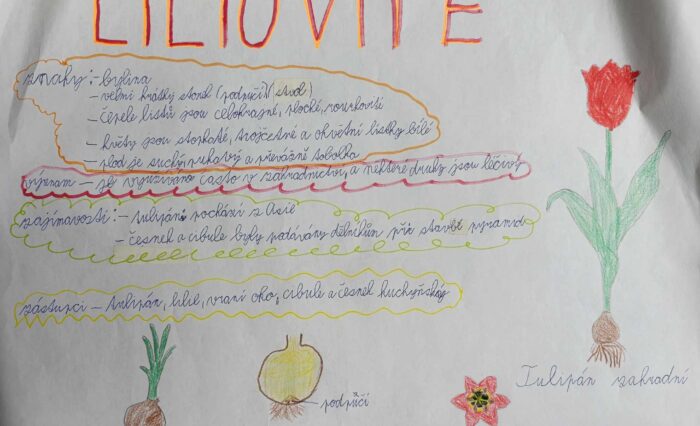 LILIOVITÉ
znaky: - bylina
- velmi krátký stonek (podpučí)(stvol)
- čepele listů jsou celokrajné, ploché, rourkovité
- květy jsou stopkaté, trojčetné a okvětní lístky bílé
- plod je suchý, pukavý a převážně tobolka
význam - je využíváno často v zahradnictví, a některé druhy jsou léčivé
zajímavosti: - tulipán pochází z Asie
- česnek a cibule byly podávány dělníkům při stavbě pyramid
zástupci - tulipán, lilie, vraní oko, cibule a česnek kuchyňský
podpučí
Tulipán zahradní